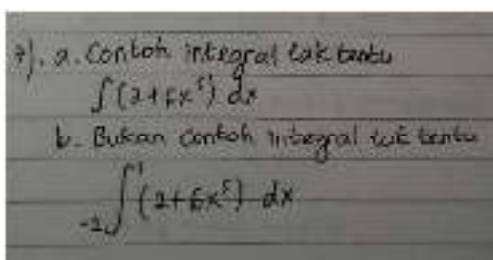 7). a. Contoh integral tak tentu
∫(2+6x⁵) dx
b. Bukan contoh integral tak tentu
-2∫¹ (2+6x⁵) dx